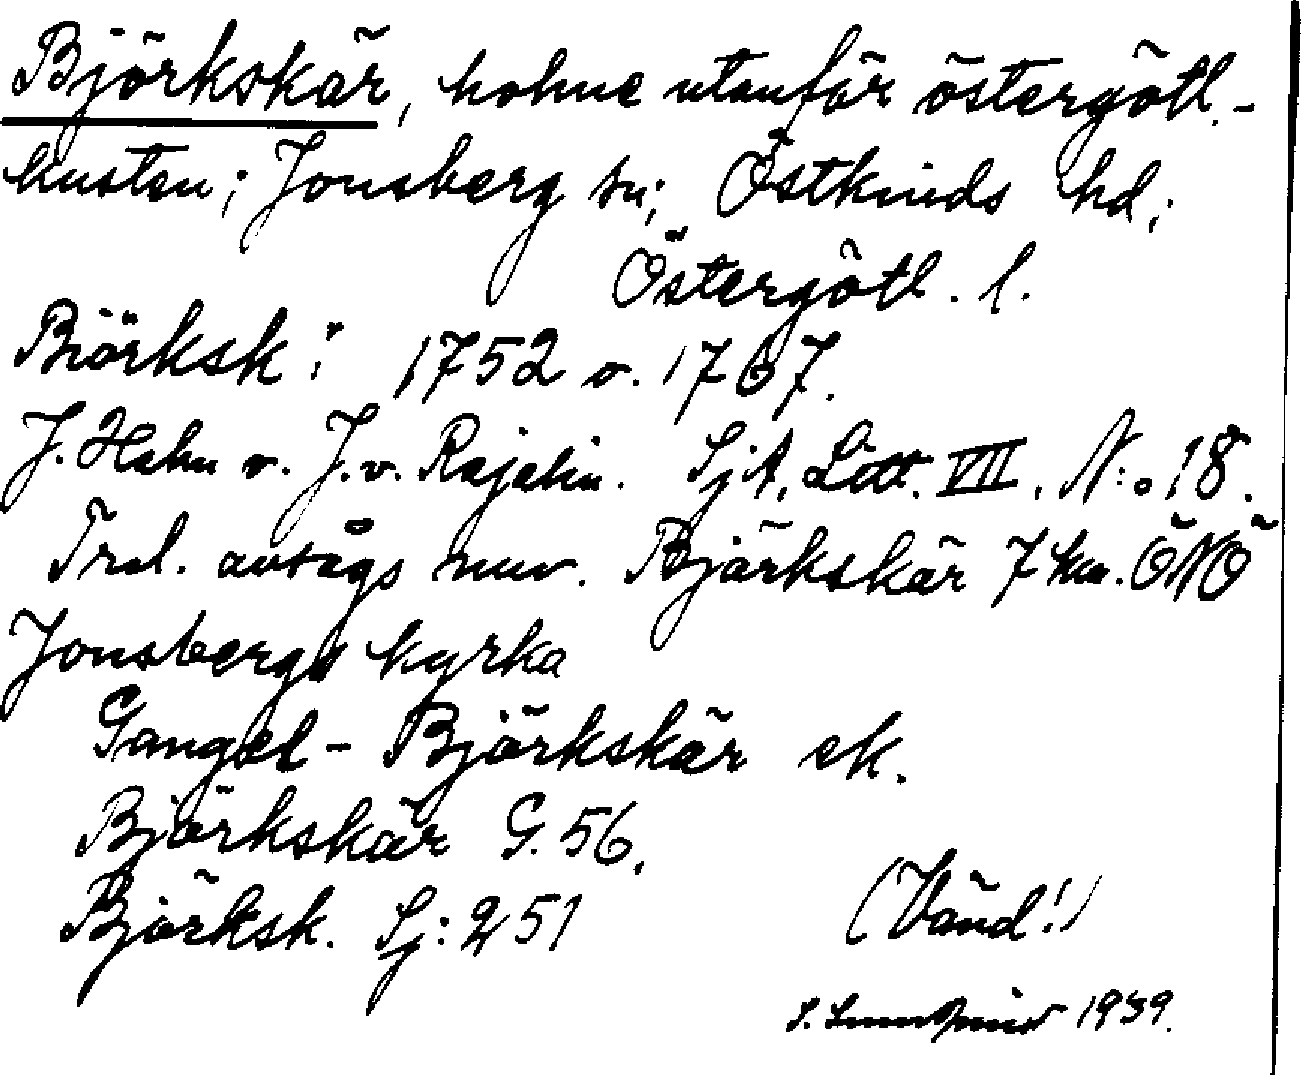 Björkskär, holme utanför östergötl.-
kusten; Jonsberg sn; Östkinds hd;
Östergötl. l.
Biörksk: 1752 o. 1767.
J. Hahn o. J. v. Rajalin. SjA, Litt. VII. N:o 18.
Trol. avsågs nuv. Björkskär 7 km. ÖNÖ
Jonsbergs kyrka
Gangel - Björkskär ek.
Björkskär G. 56.
Björksk. Sj: 251
(Vänd!)
S. 1939.